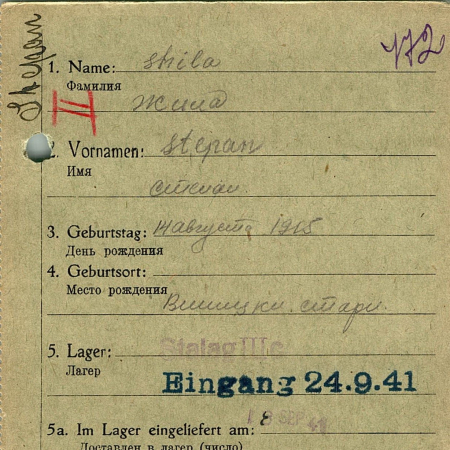 Stepan
172
1. Name: shila
Фамилия
II
Жила
2. Vornamen: stepan
Имя
степан
3. Geburtstag: 14 августа 1915
День рождения
4. Geburtsort:
Место рождения
5. Lager: Stalag III
Лагер
Eingang 24.9.41
18 SEP 41
5a. Im Lager eingeliefert am:
Доставлен в лагер (число)